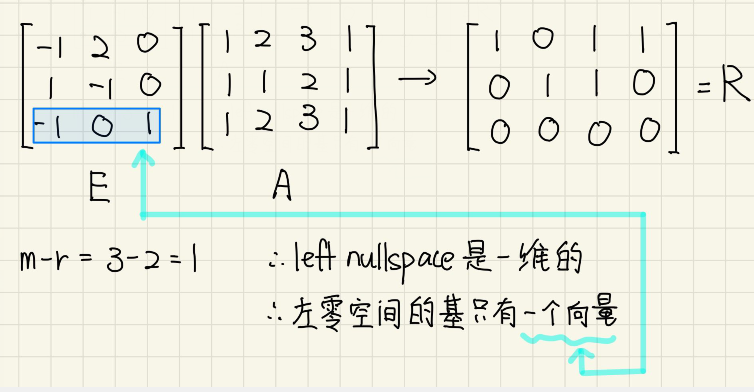 [-1 2 0] [1 2 3 1] [1 0 1 1]
[1 -1 0] [1 1 2 1] → [0 1 1 0] = R
[-1 0 1] [1 2 3 1] [0 0 0 0]
E A
m-r = 3-2 = 1 ∴ left nullspace 是一维的
∴ 左零空间的基只有一个向量